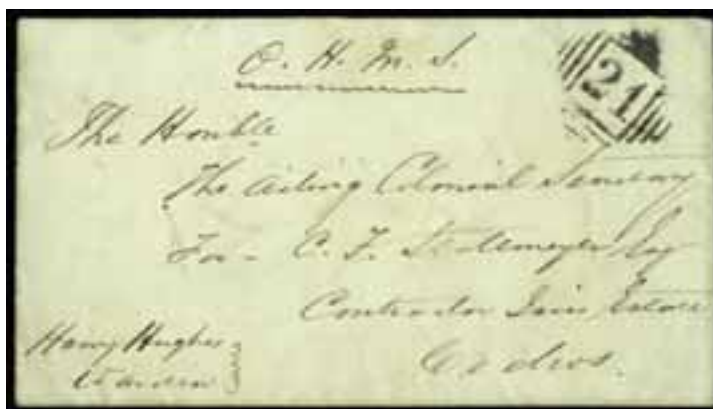 O. H. M. S.
21
The Honble
The Acting Colonial Secretary
For - C. F. Stollmeyer Esq
Contractor
Cedros.
Harry Hughes
Warden